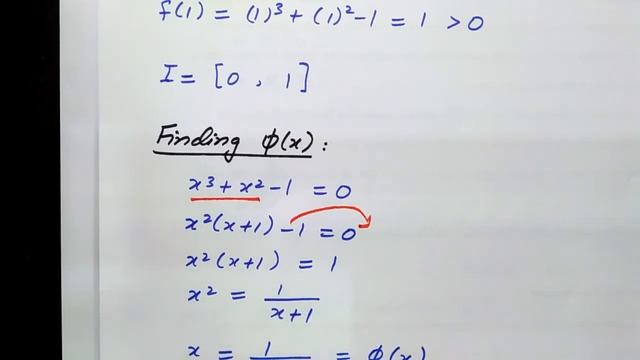 f(1) = (1)³ + (1)² - 1 = 1 > 0
I = [0 , 1]
Finding φ(x) :
x³ + x² - 1 = 0
x²(x+1) - 1 = 0
x²(x+1) = 1
x² = 1/(x+1)
x = 1/ = φ(x)